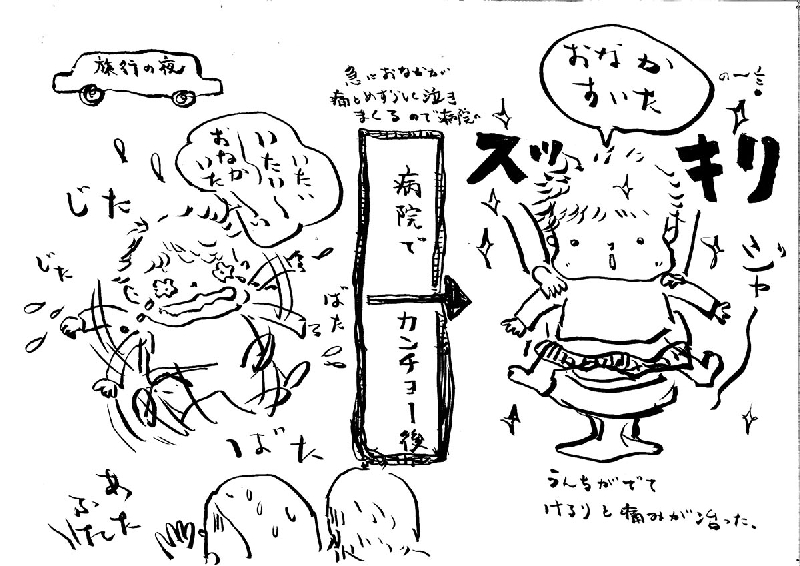 旅行の夜
いたい
いたい〜
おなか
いた〜い
じた
じた
ばた
ばた
あ
ふた
急におなかが
痛いとめずらしく泣き
まくるので病院へ
病院で
カンチョー後
おなか
すいた
の〜
スッキリ
ジャー
うんちがでて
けろりと痛みが治った。